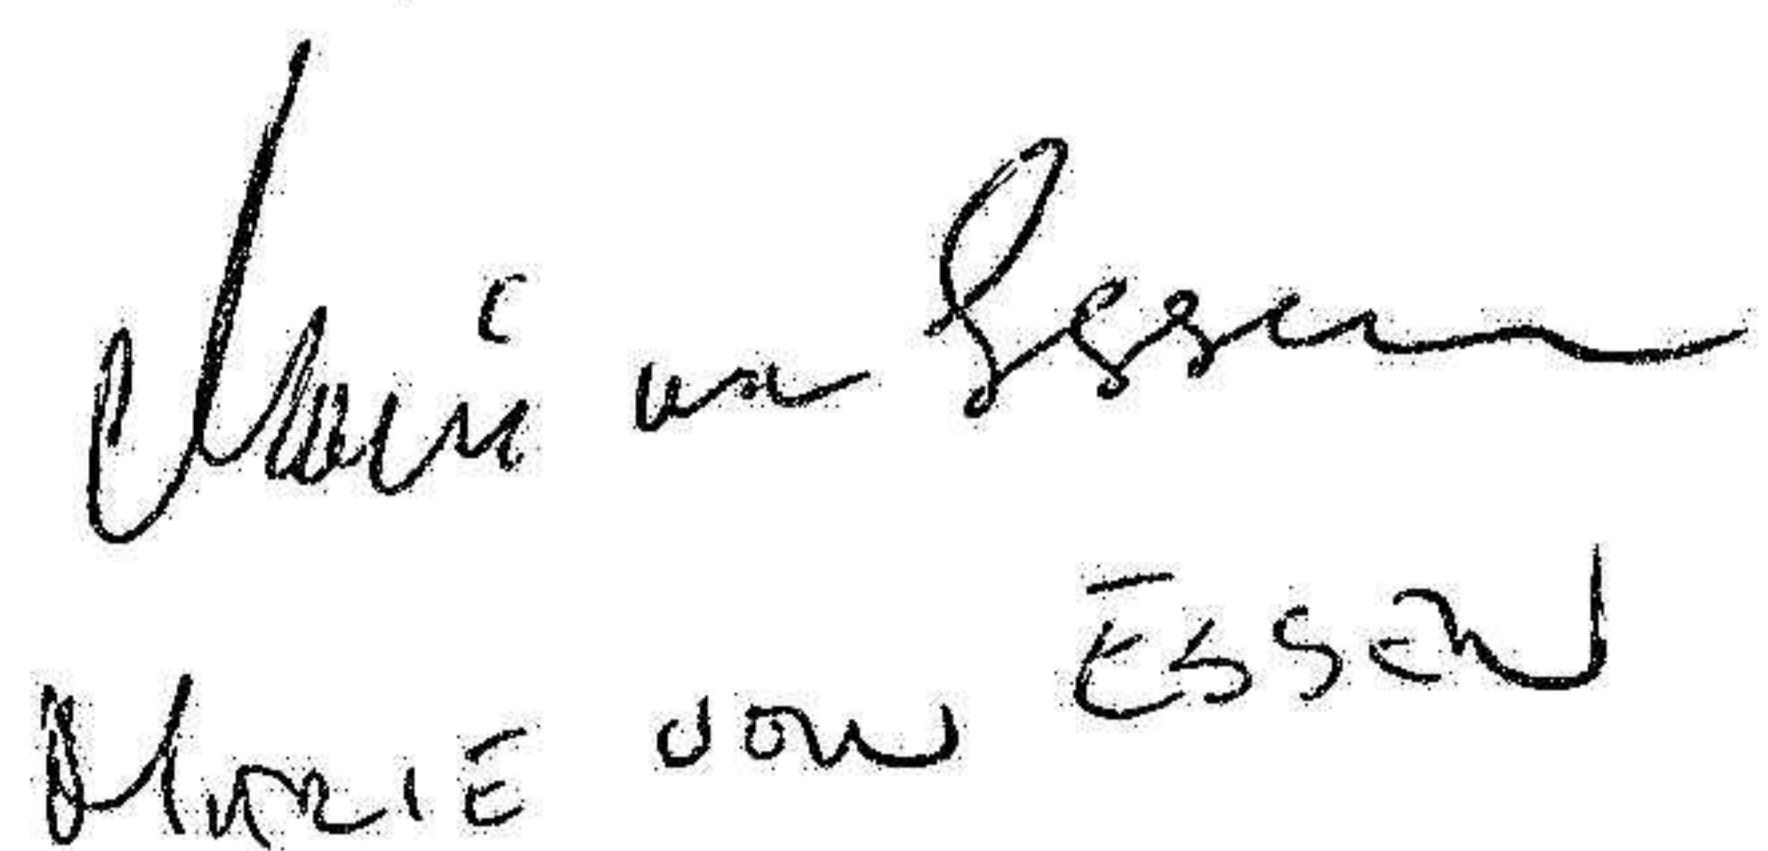 Marie von Essen
MARIE VON ESSEN